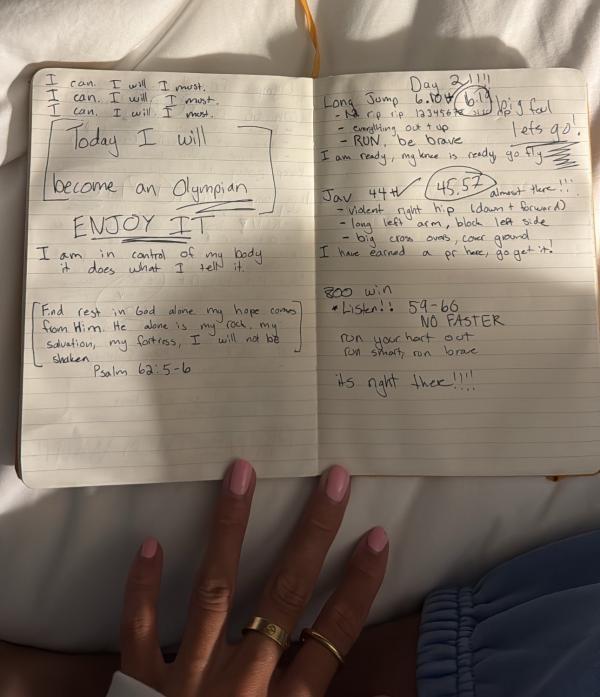 I can. I will. I must.
I can. I will. I must.
I can. I will. I must.
Today I will
become an Olympian
ENJOY IT
I am in control of my body
it does what I tell it.
Find rest in God alone. my hope comes
from Him. He alone is my rock, my
salvation, my fortress, I will not be
shaken
Psalm 62:5-6
Day 2!!!!
Long Jump 6.10 6.19 big foul
- rip rip 123456
- everything out + up
lets go!
- RUN, be brave
I am ready, my knee is ready, go fly
Jav 44+ ✓ 45.57 almost there!!!
- violent right hip (down + forward)
- long left arm, block left side
- big cross overs, cover ground
I have earned a pr here, go get it!
800 win
* Listen!! 59-66
NO FASTER
run your hart out
run smart, run brave
its right there!!!!